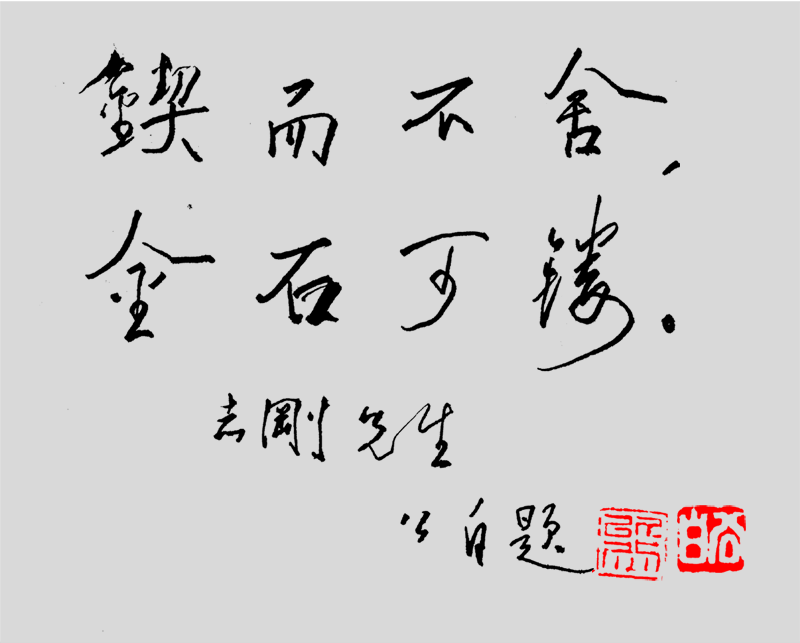 鍥而不舍，
金石可镂。
志剛先生
公自题